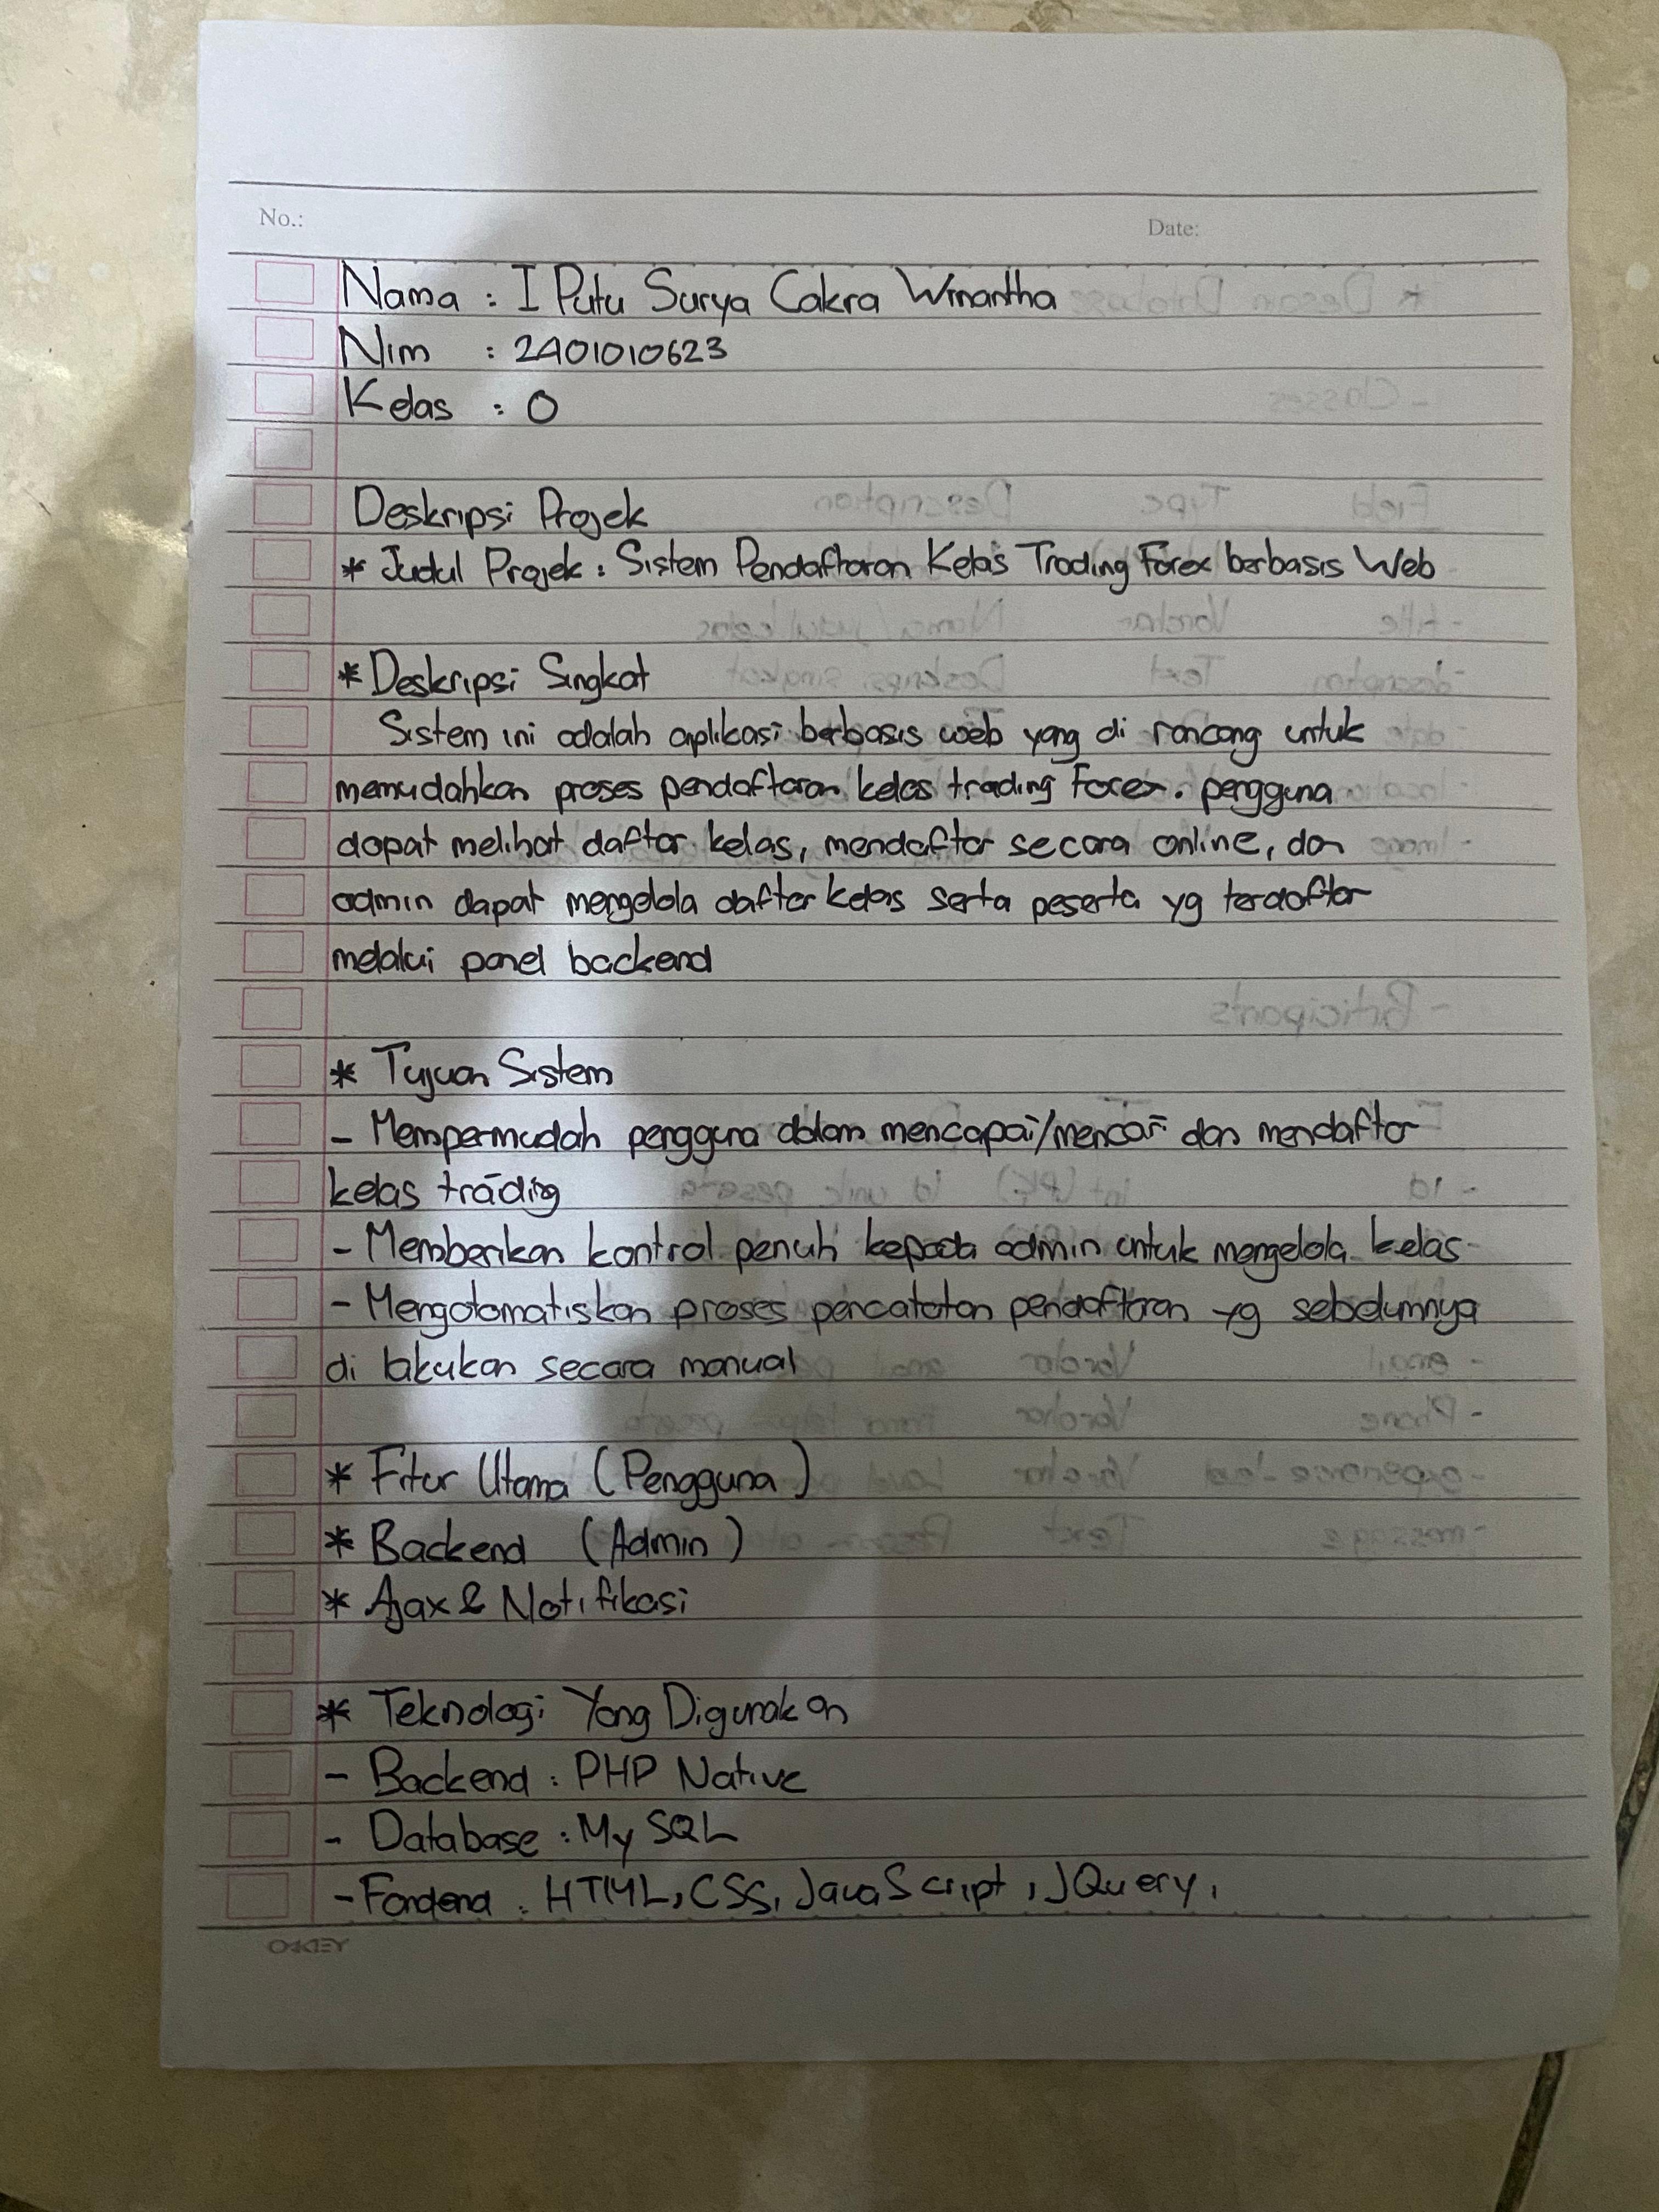 No.:
Date:
Nama : I Putu Surya Cakra Winantha
Nim : 2401010623
Kelas : O
Deskripsi Projek
* Judul Projek : Sistem Pendaftaran Kelas Trading Forex berbasis Web
* Deskripsi Singkat
Sistem ini adalah aplikasi berbasis web yang di rancang untuk
memudahkan proses pendaftaran kelas trading Forex. pengguna
dapat melihat daftar kelas, mendaftar secara online, dan
admin dapat mengelola daftar kelas serta peserta yg terdaftar
melalui panel backend
* Tujuan Sistem
- Mempermudah pengguna dalam mencapai/mencari dan mendaftar
kelas trading
- Memberikan kontrol penuh kepada admin untuk mengelola kelas
- Mengotomatiskan proses pencatatan pendaftaran yg sebelumnya
di lakukan secara manual
* Fitur Utama (Pengguna)
* Backend (Admin)
* Ajax & Notifikasi
* Teknologi Yang Digunakan
- Backend : PHP Native
- Database : My SQL
- : HTML, CSS, JavaScript, JQuery,
OKEY